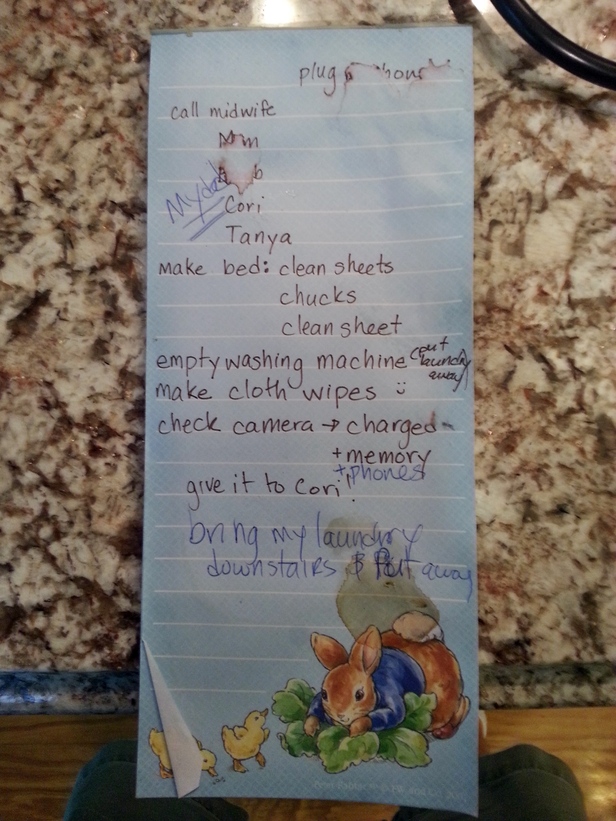 plug
call midwife
Mom
My dad
Cori
Tanya
make bed: clean sheets
chucks
clean sheet
empty washing machine (put laundry away)
make cloth wipes :)
check camera → charged -
+ memory
+ phones
give it to Cori!
bring my laundry
downstairs & Put away